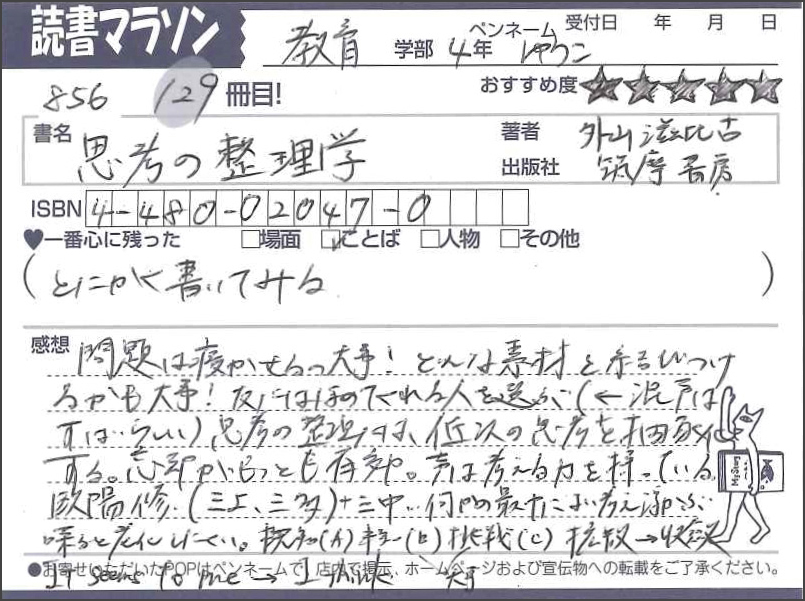 読書マラソン
受付日 年 月 日
教育 学部 4年 ペンネーム ゆうこ
856 129 冊目!
おすすめ度 ★★★★★
書名 思考の整理学
著者 外山滋比古
出版社 筑摩書房
ISBN 4-480-02047-0
♥一番心に残った □場面 ☑ことば □人物 □その他
(とにかく書いてみる)
感想 問題は寝かせるの大事!どんな素材と結びつけ
るかも大事!友にはほめてくれる人を選ぶ(←
すばらしい)思考の整理は、低次の思考を抽象化
する。忘却がもっとも有効。声は考える力を持っている。
欧陽修(三上、三多)+三中
既知(A) (B)挑戦(C) 拡散→収斂
It seems to me → I think 大事
●お寄せいただいたPOPはペンネームで、店内で掲示、ホームページおよび宣伝物への転載をご了承ください。